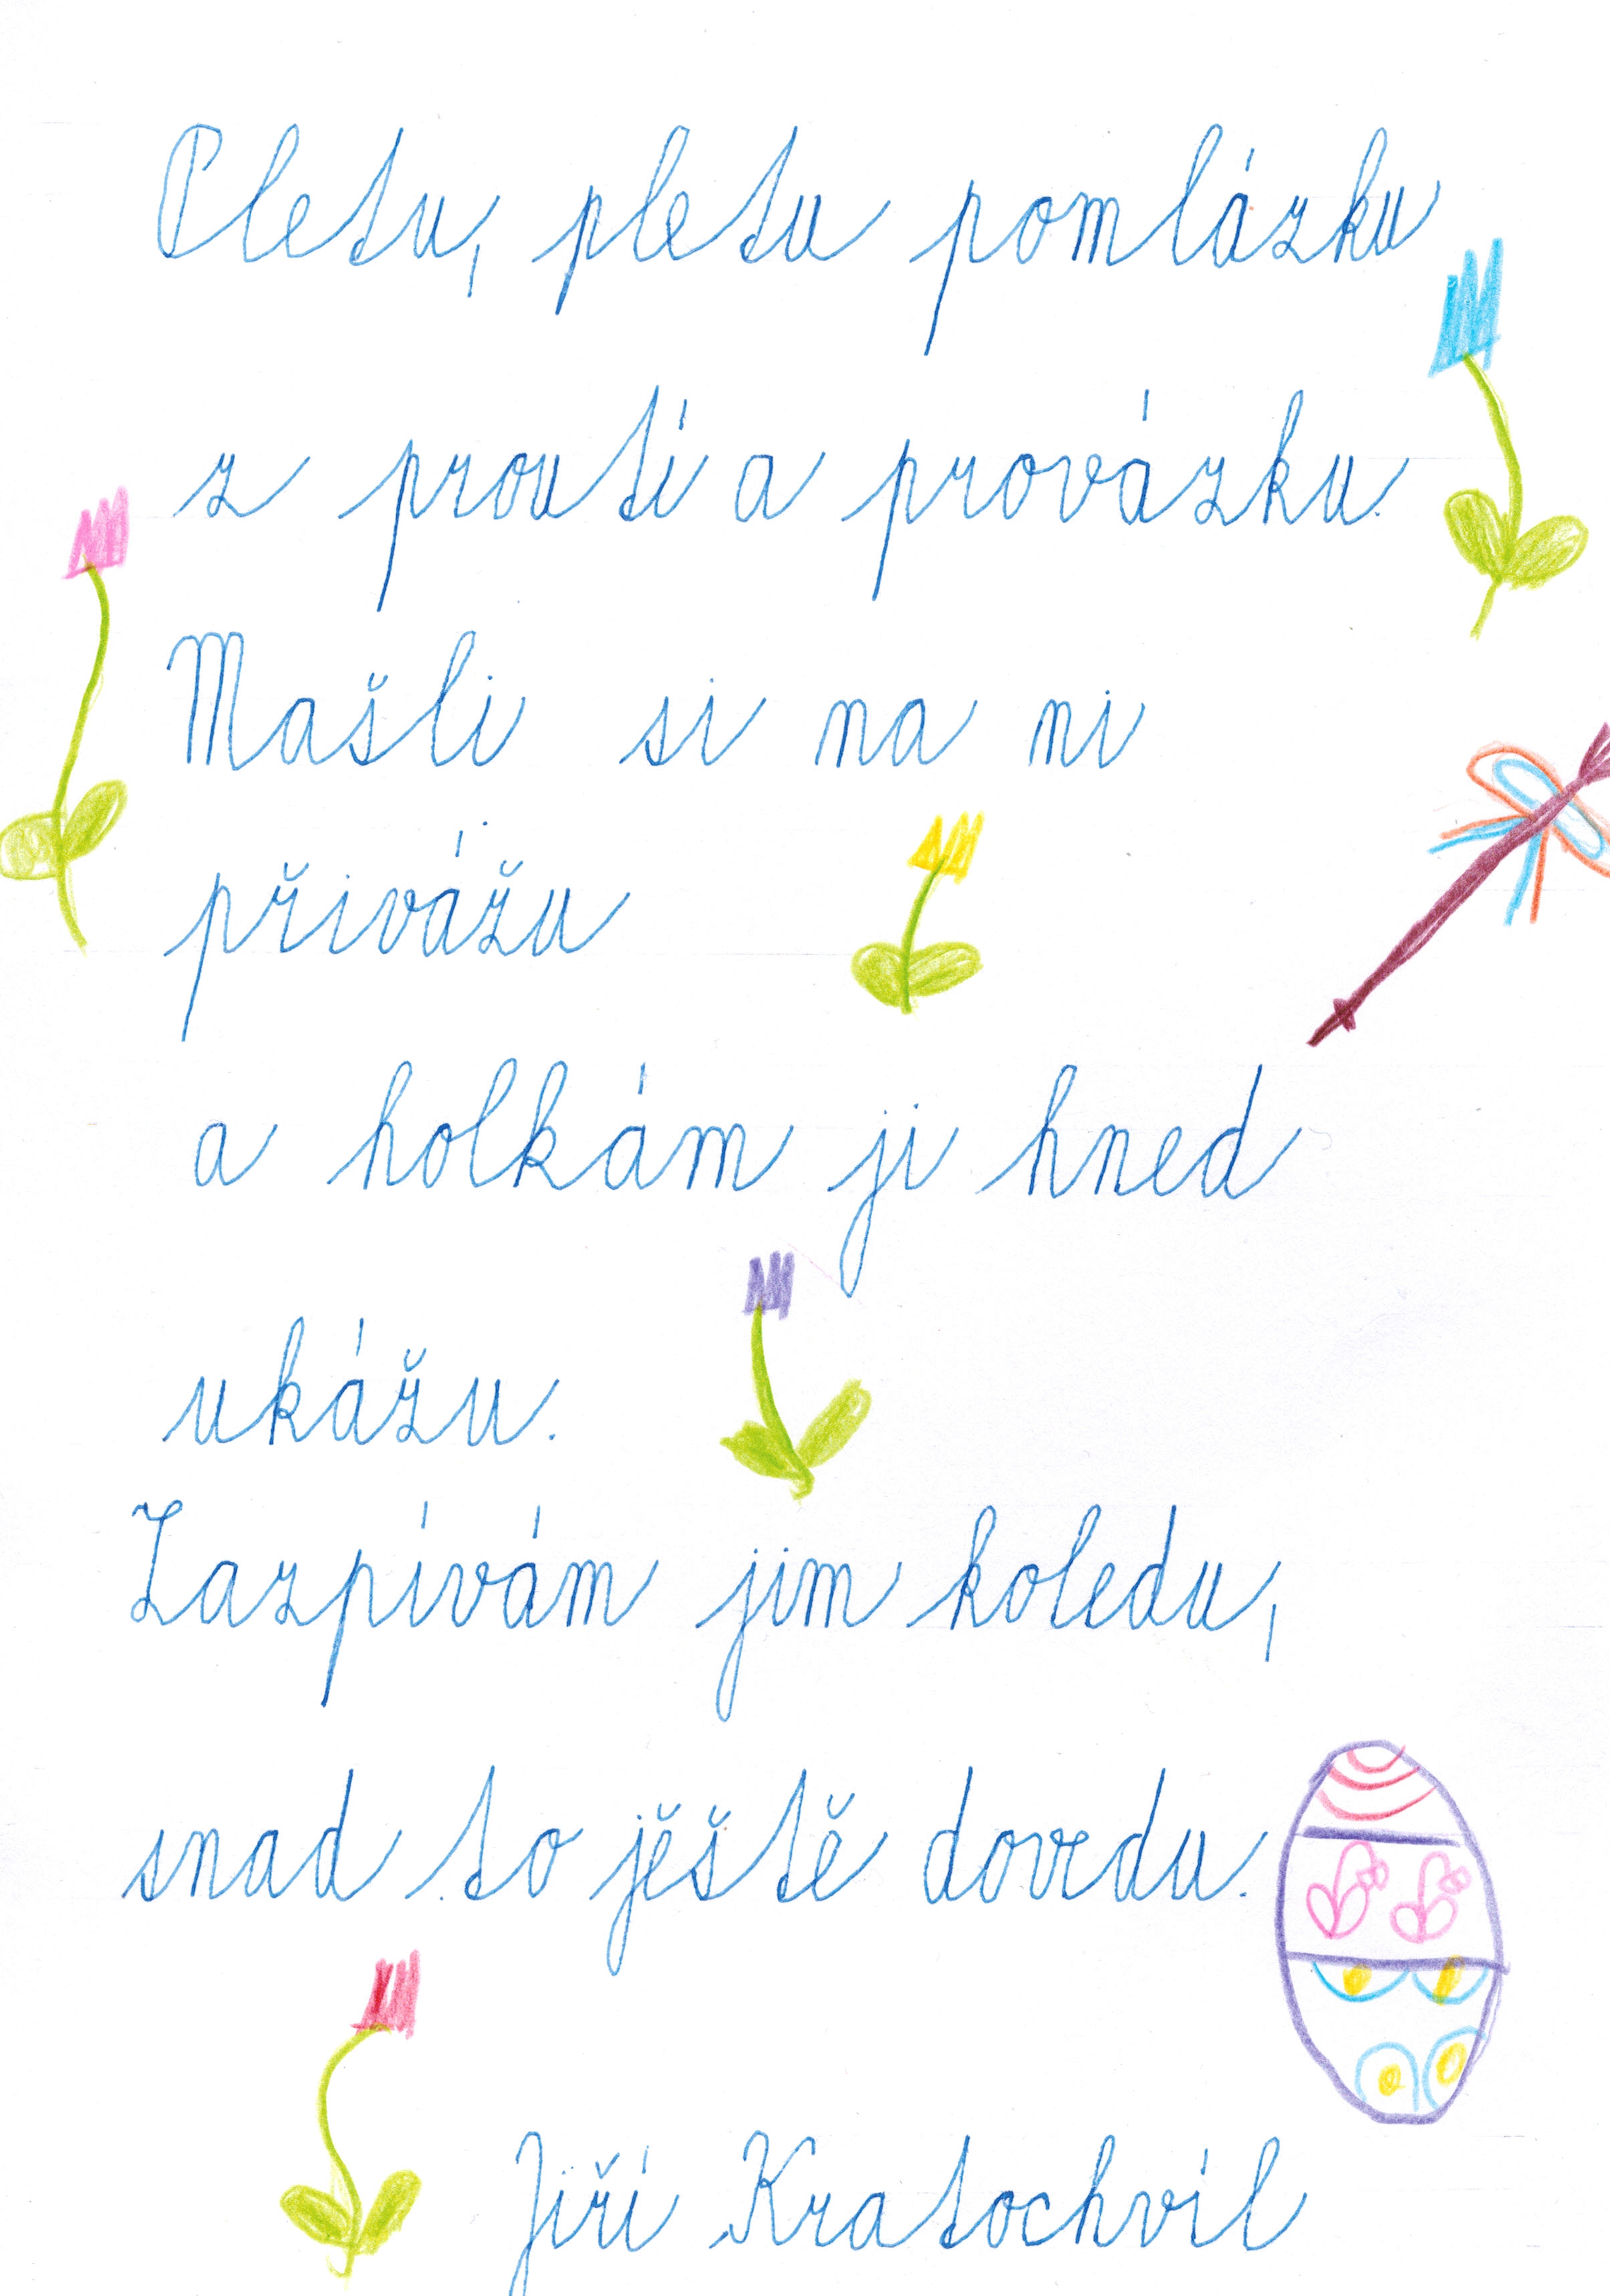 Pletu, pletu pomlázku
z proutí a provázku.
Mašli si na ni
přivážu
a holkám ji hned
ukážu.
Zazpívám jim koledu,
snad to ještě dovedu.
Jiří Kratochvíl